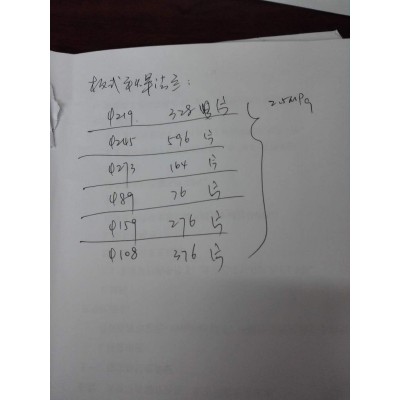 板式平焊法兰:
φ219 328片
φ245 596片
φ273 164片
φ89 76片
φ159 276片
φ108 376片
2.5MPa